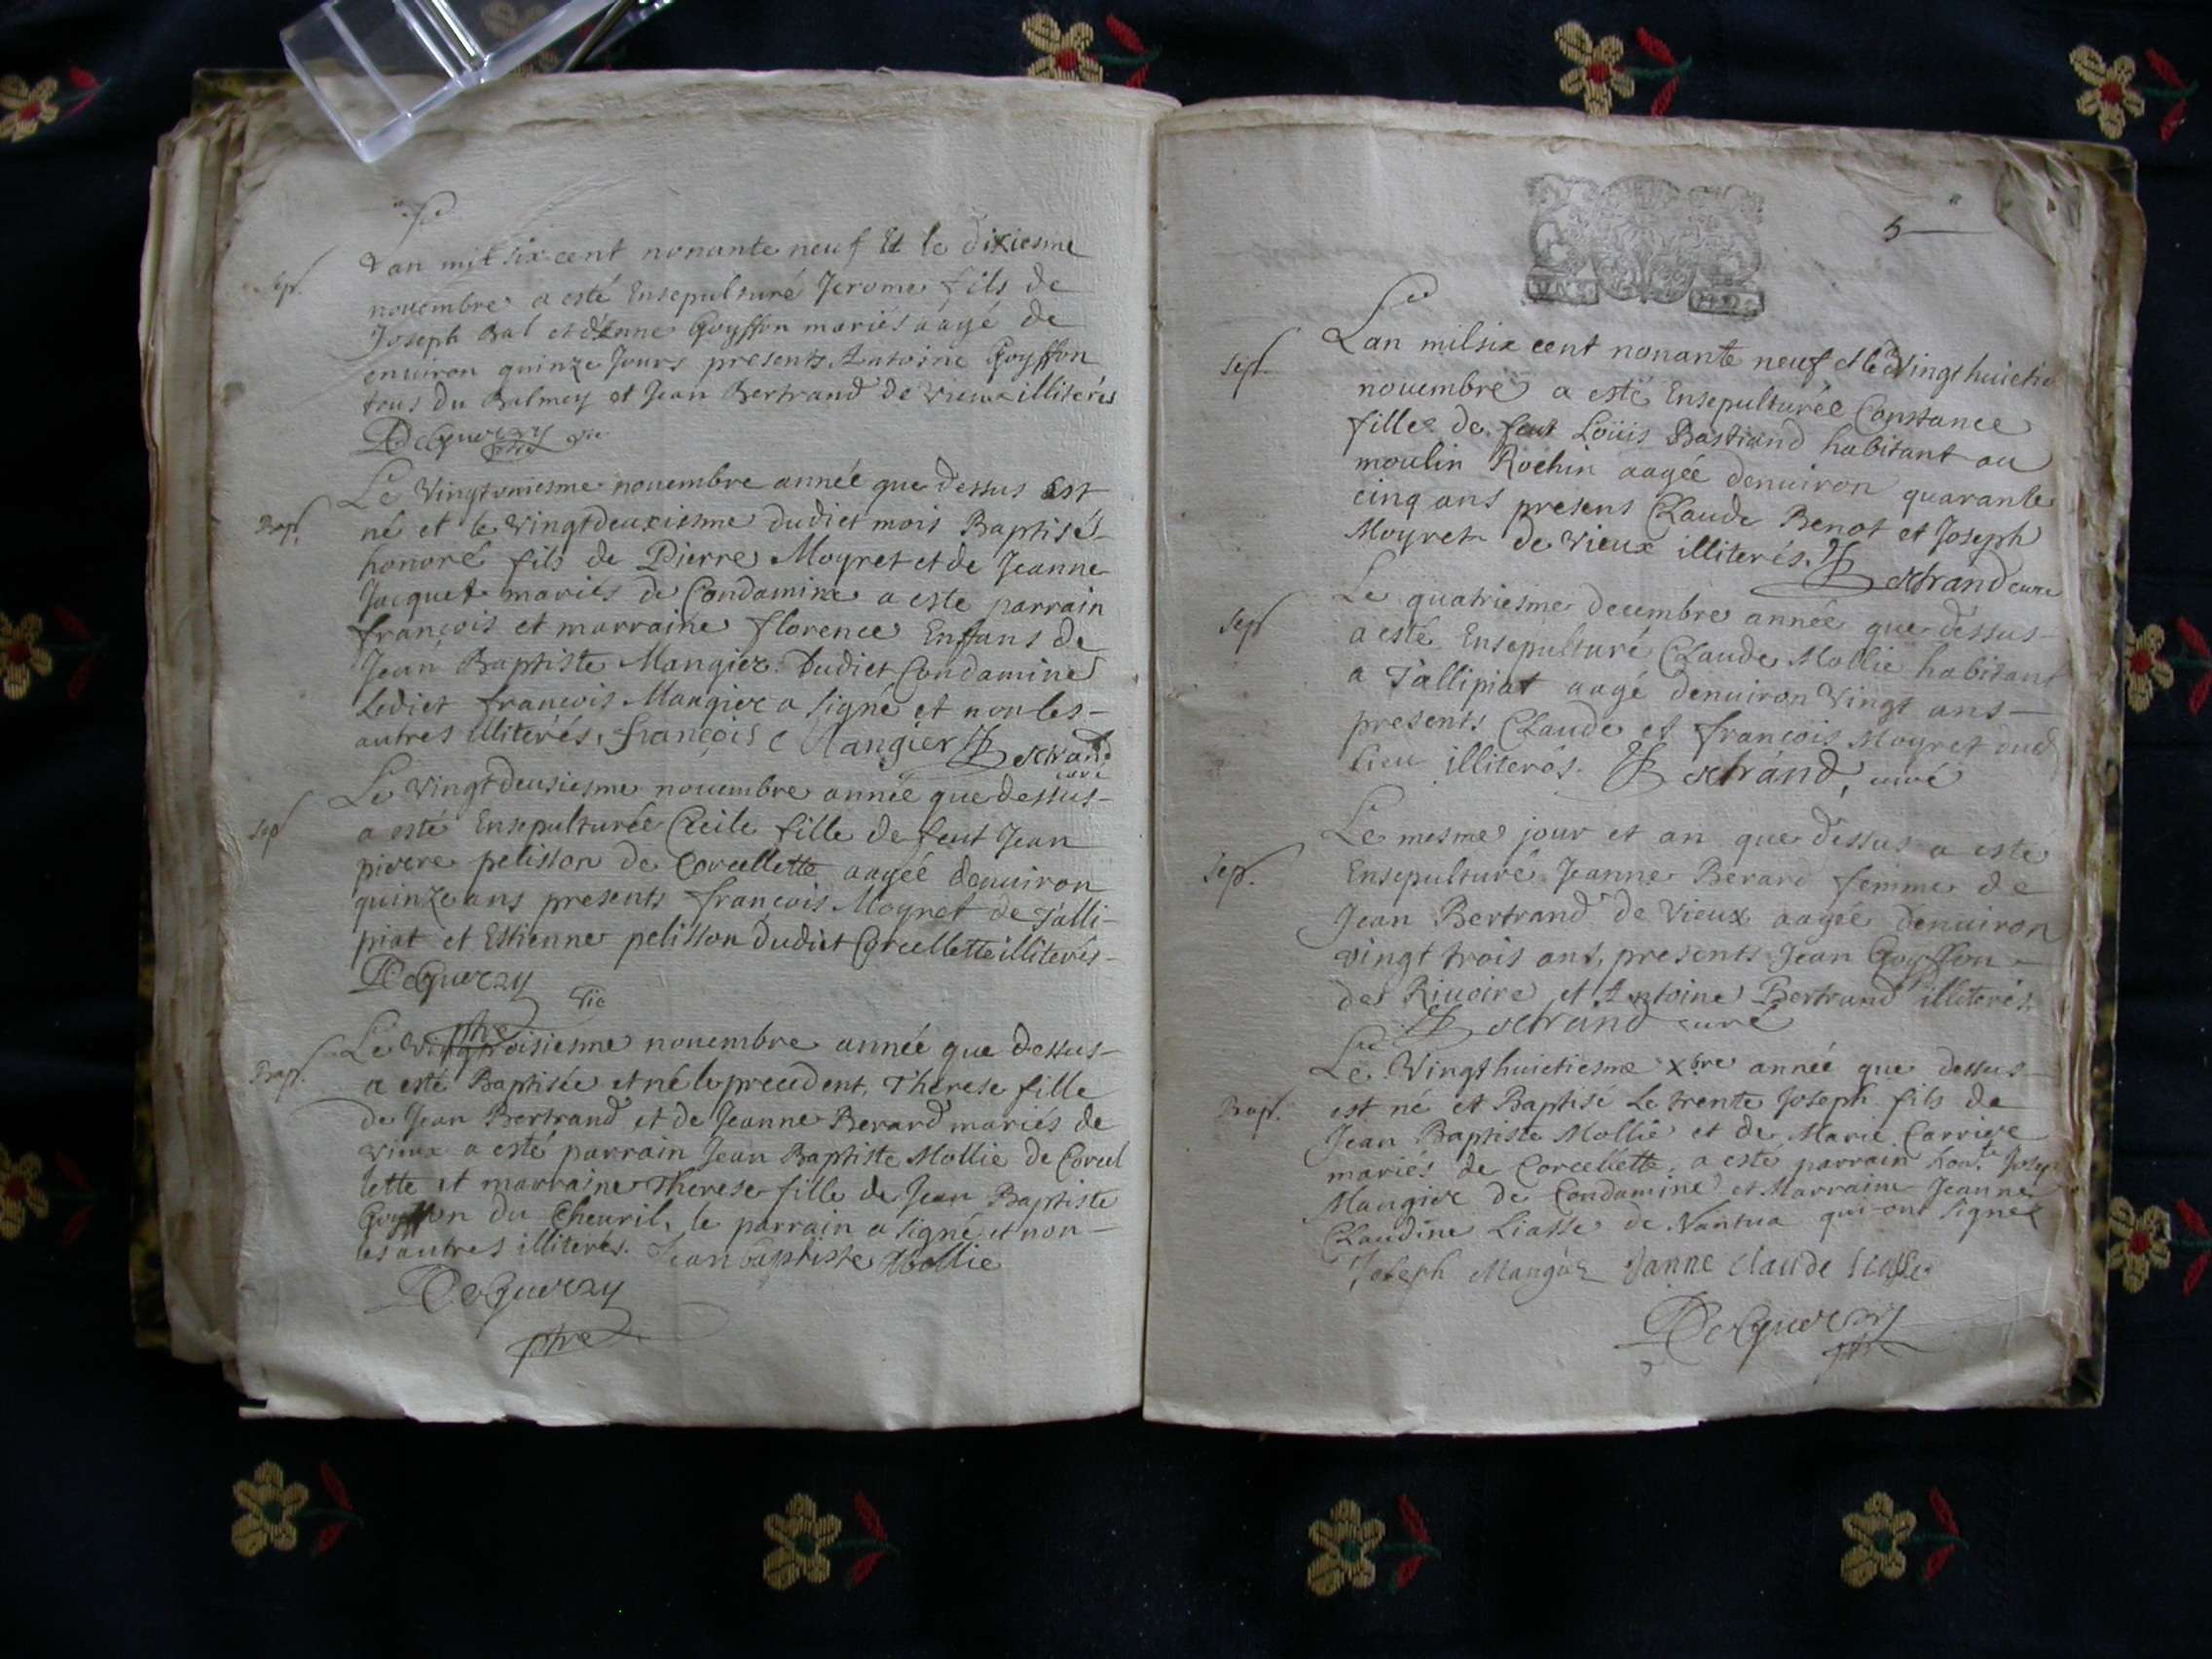 Lan mil six cent nonante neuf Et le dixiesme
Sep.
nouembre a esté Ensepulturé Jerome fils de
Joseph Bal et d'Enne Goyffon mariés aagé de
enuiron quinze Jours presents Antoine Goyffon
tous du Balmey et Jean Bertrand de vieux illiterés
DeGuerry vic
ptre
Le Vingtuniesme nouembre année que dessus Est
Bap.
né et le vingtdeuxiesme dudict mois Baptisé
honoré fils de Pierre Moyret et de Jeanne
Jacquet mariés de Condamine a este parrain
francois et marraine florence Enffans de
Jean Baptiste Mangier Dudict Condamine
Ledict francois Mangier a signé et non les
autres illiterés, françois Mangier JBertrand
curé
Le vingtdeusiesme nouembre année que dessus
Sep
a esté Ensepulturée Cecile fille de feut Jean
pierre pelisson de Corcellette aagée denuiron
quinze ans presents francois Moyret de Talli-
piat et Estienne pelisson dudict Corcellette illiterés
DeGuerry
vic
ptre
Le vingtroisiesme nouembre année que dessus
Bap.
a esté Baptisée et né le precedent, Therese fille
de Jean Bertrand et de Jeanne Berard mariés de
vieux a esté parrain Jean Baptiste Mollie de Corcel
lette et marraine Therese fille de Jean Baptiste
Goyffon du Cheuril, le parrain a signé et non
les autres illiterés. Jean baptiste Mollie
DeGuerry
ptre
5
Lan mil six cent nonante neuf et le Vingt huictie
Sep.
nouembre a esté Ensepulturée Constance
fille de feut Loüis Bastiand habitant au
moulin Rochin aagée denuiron quarante
cinq ans presens Claude Benot et Joseph
Moyret de vieux illiterés. JBertrand curé
Le quatriesme decembre année que dessus
Sep
a esté Ensepulturé Claude Mollie habitant
a Tallipiat aagé denuiron vingt ans
presents Claude et francois Moyret dud
lieu illiterés. JBertrand, curé
Le mesme jour et an que dessus a este
Sep.
Ensepulturé Jeanne Berard femme de
Jean Bertrand de Vieux aagée denuiron
vingt trois ans, presents Jean Goyffon
des Riuoire et Antoine Bertrand illiterés.
JBertrand curé
Le Vingt huictiesme Xbre année que dessus
Bap.
est né et Baptisé le trente Joseph fils de
Jean Baptiste Mollie et de Marie Carrier
mariés de Corcellette. a este parrain hon.te Josep
Mangier de Condamine et Marraine Jeanne
Claudine Liasse de Nantua qui ont signez
Joseph Mangier Janne claude liasse
DeGuerry
ptre